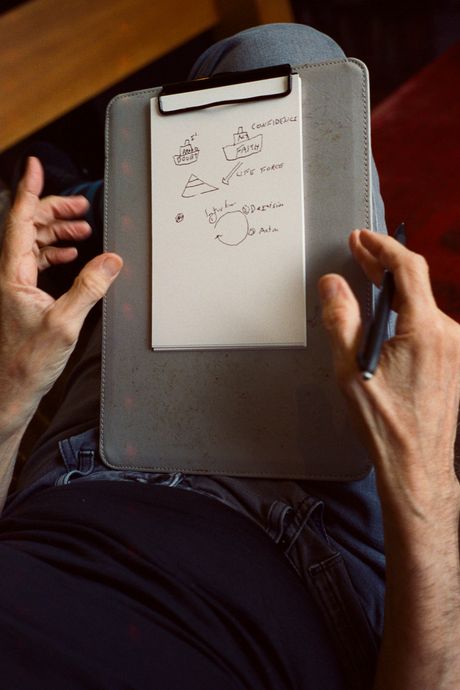 CONFIDENCE
DOUBT
FAITH
LIFE FORCE
Intuition
① ② Decision
③ Action